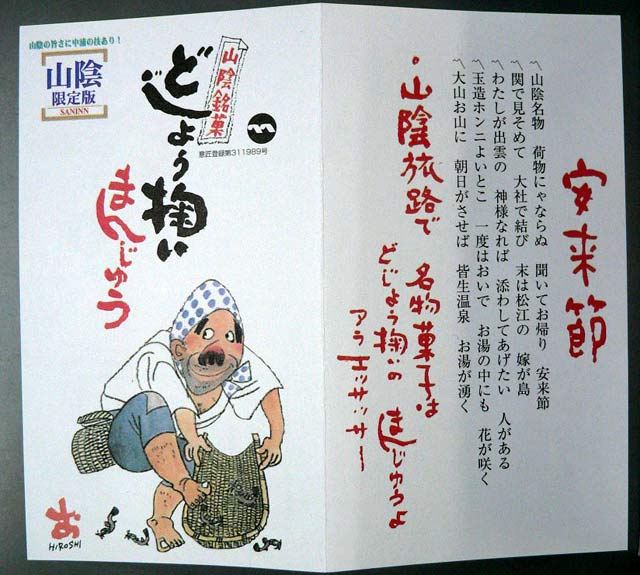 山陰の旨さに中浦の技あり！
山陰
限定版
SANINN
山陰銘菓
意匠登録第311989号
どじょう掬い
まんじゅう
お
HIROSHI
安来節
〽山陰名物　荷物にゃならぬ　聞いてお帰り　安来節
〽関で見そめて　大社で結び　末は松江の　嫁が島
〽わたしが出雲の　神様なれば　添わしてあげたい　人がある
〽玉造ホンニよいとこ　一度はおいで　お湯の中にも　花が咲く
〽大山お山に　朝日がさせば　皆生温泉　お湯が湧く
・山陰旅路で　名物菓子は
どじょう掬いの　まんじゅうよ
アラ　エッサッサー